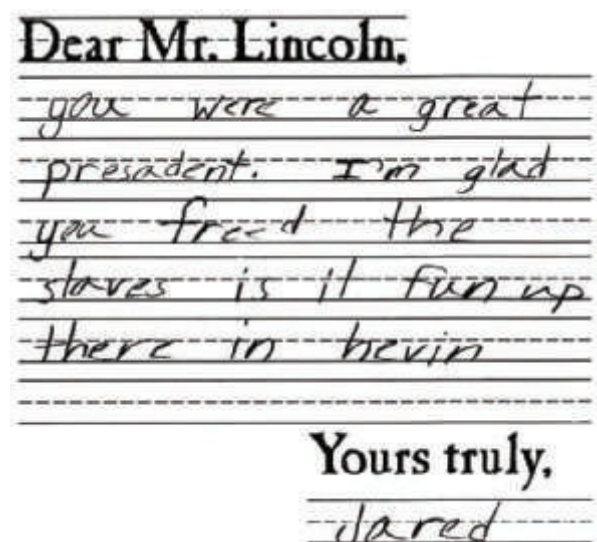 Dear Mr. Lincoln,
you were a great
presadent. I'm glad
you freed the
slaves is it fun up
there in hevin
Yours truly,
Jared